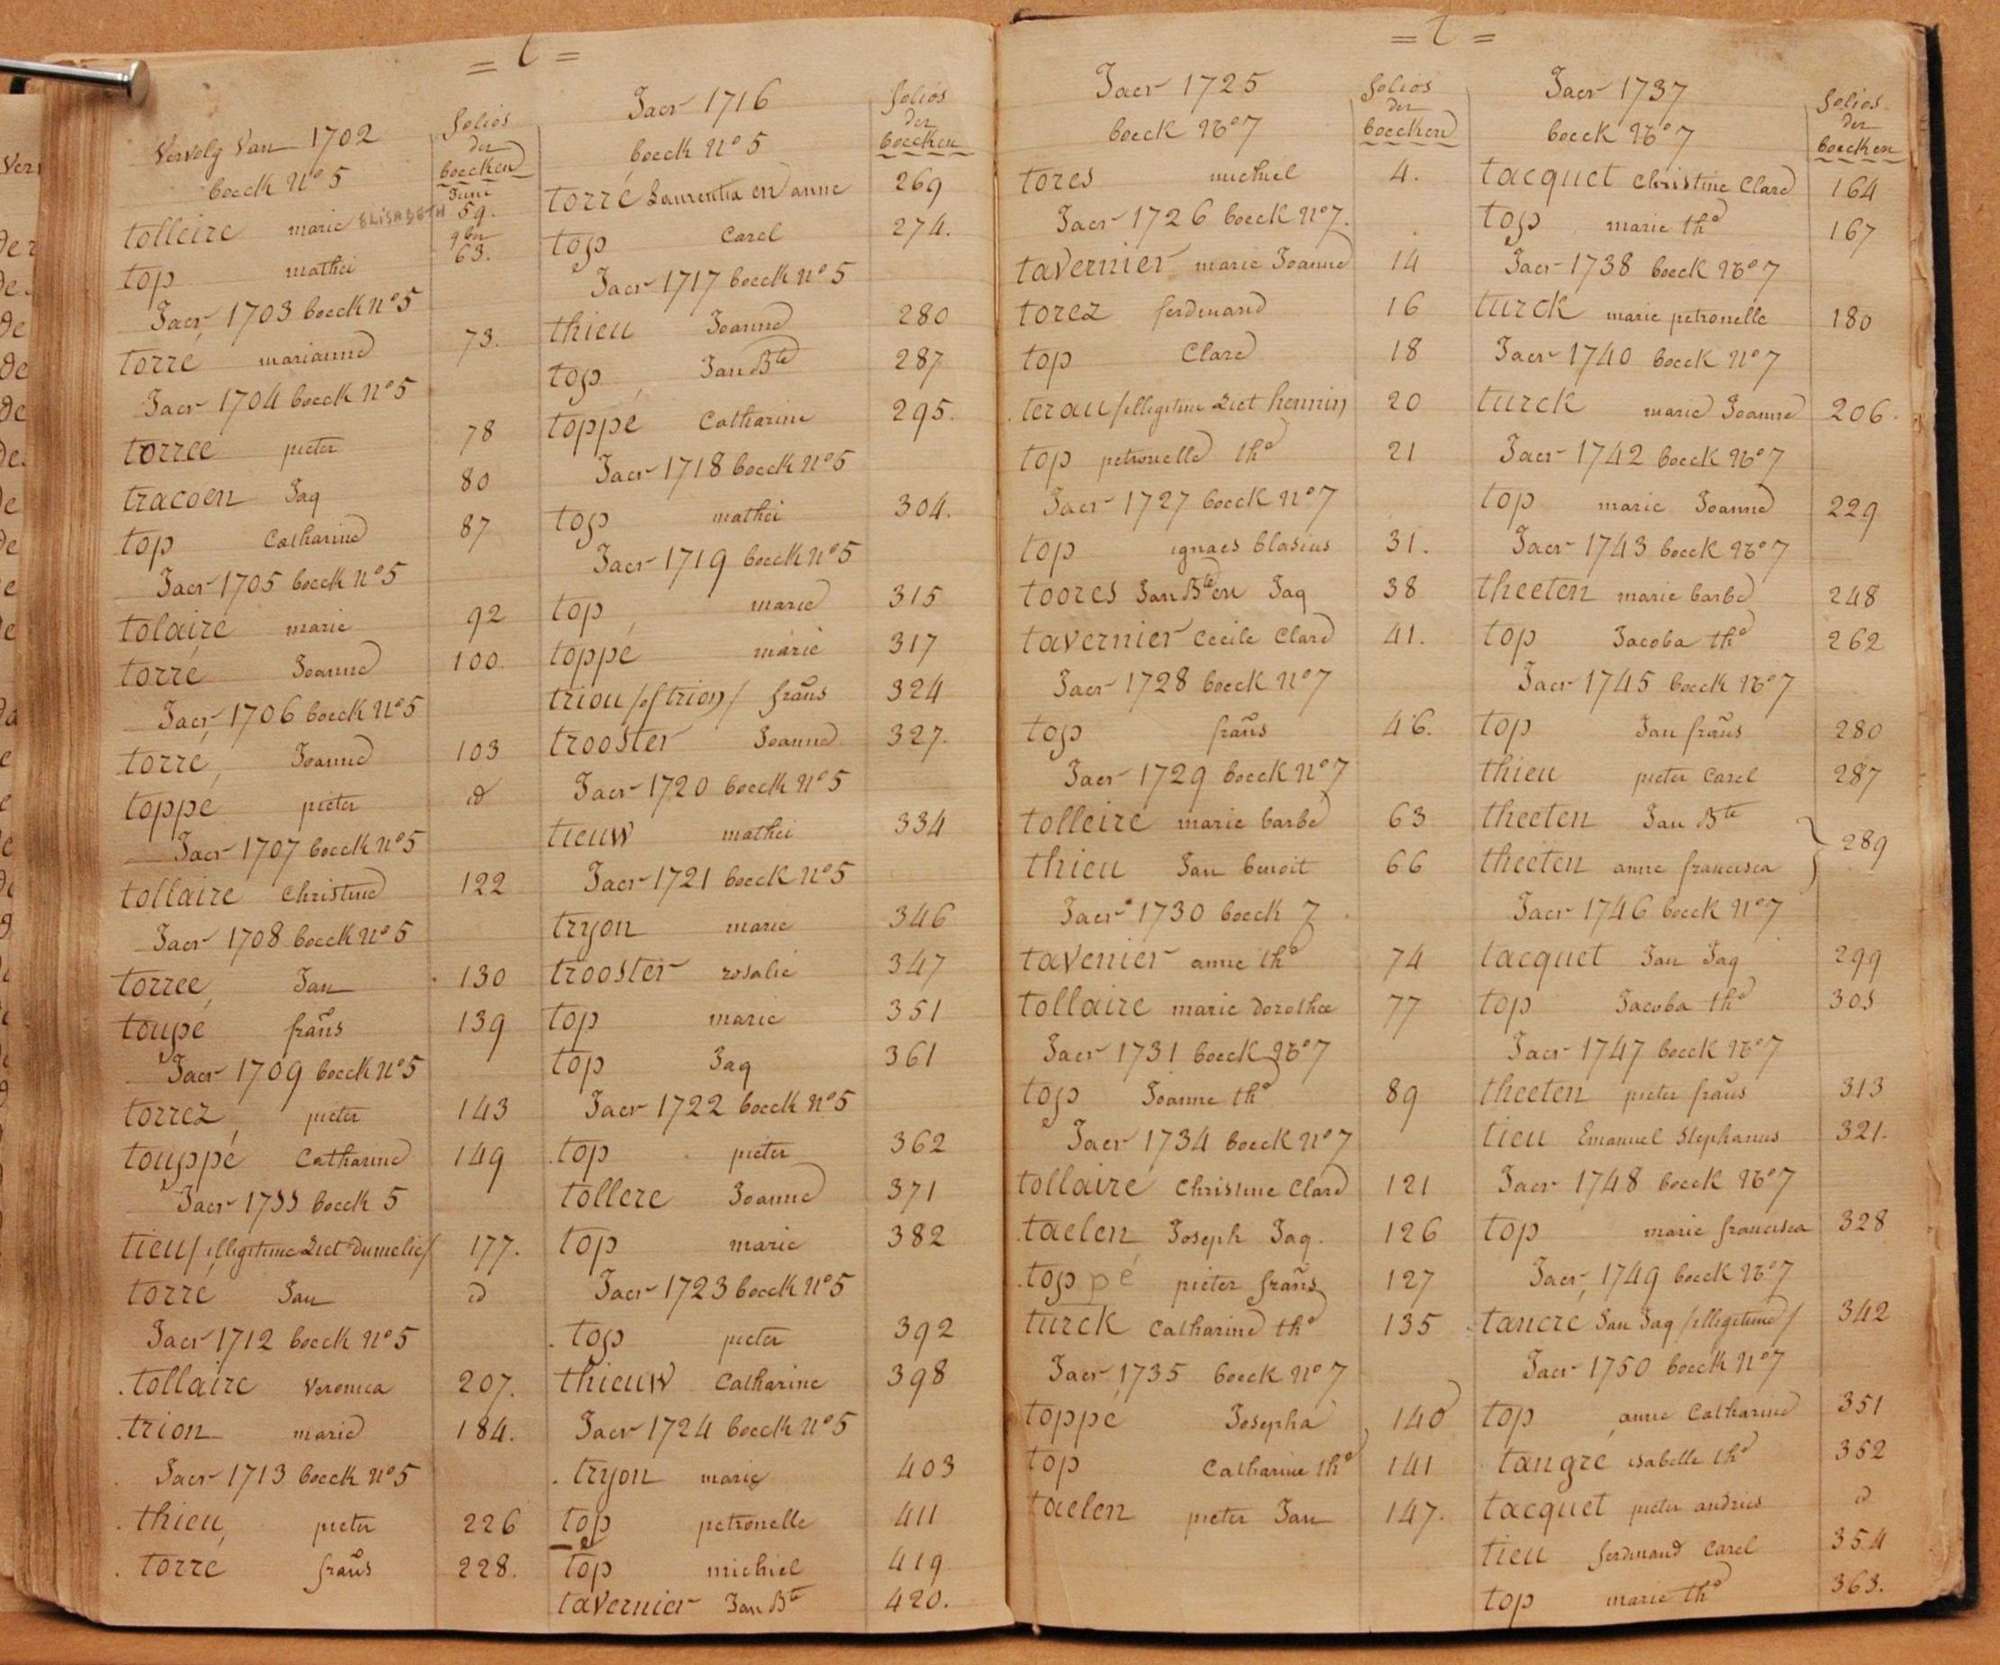 = t =
Vervolg Van 1702
boeck N° 5
folios
der
boecken
tolleire marie ELISABETH Juni 59.
top mathei 9ber 63.
Jaer 1703 boeck N° 5
torré marianne 73.
Jaer 1704 boeck N° 5
torree pieter 78
tracoen Jaq 80
top Catharine 87
Jaer 1705 boeck N° 5
tolairé marie 92
torré Joanne 100.
Jaer 1706 boeck N° 5
torré Joanne 103
toppé pieter id
Jaer 1707 boeck N° 5
tollaire Christine 122
Jaer 1708 boeck N° 5
torree Jan 130
toupé frans 139
Jaer 1709 boeck N° 5
torrez pieter 143
touppé Catharine 149
Jaer 1711 boeck 5
tieu /illegitime Dict Dumelie/ 177.
torré Jan id
Jaer 1712 boeck N° 5
tollaire Veronica 207.
trion marie 184.
Jaer 1713 boeck N° 5
thieu pieter 226
torré frans 228.
Jaer 1716
boeck N° 5
folios
der
boecken
torré Laurentia en anne 269
top Carel 274.
Jaer 1717 boeck N° 5
thieu Joanne 280
top Jan Bte 287
toppé Catharine 295.
Jaer 1718 boeck N° 5
top mathei 304.
Jaer 1719 boeck N° 5
top marie 315
toppé marie 317
triou /of trion/ frans 324
trooster Joanne 327.
Jaer 1720 boeck N° 5
tieuw mathei 334
Jaer 1721 boeck N° 5
tryon marie 346
trooster rosalie 347
top marie 351
top Jaq 361
Jaer 1722 boeck N° 5
top pieter 362
tollere Joanne 371
top marie 382
Jaer 1723 boeck N° 5
top pieter 392
thieuw Catharine 398
Jaer 1724 boeck N° 5
tryon marie 403
top petronelle 411
top michiel 419
tavernier Jan Bte 420.
= t =
Jaer 1725
boeck N° 7
folios
der
boecken
tores michiel 4.
Jaer 1726 boeck N° 7.
tavernier marie Joanne 14
torez ferdinand 16
top Clare 18
terau /illegitime Dict hennin/ 20
top petronelle the 21
Jaer 1727 boeck N° 7
top ignaes blasius 31.
toores Jan Bte en Jaq 38
tavernier Cecile Clare 41.
Jaer 1728 boeck N° 7
top frans 46.
Jaer 1729 boeck N° 7
tolleire marie barbe 63
thieu Jan benoit 66
Jaer 1730 boeck 7
tavenier anne the 74
tollaire marie Dorothee 77
Jaer 1731 boeck N° 7
top Joanne the 89
Jaer 1734 boeck N° 7
tollaire Christine Clare 121
taelen Joseph Jaq. 126
toppé pieter frans 127
turck Catharine the 135
Jaer 1735 boeck N° 7
toppé Josepha 140
top Catharine the 141
taelen pieter Jan 147.
Jaer 1737
boeck N° 7
folios
der
boecken
tacquet Christine Clare 164
top marie the 167
Jaer 1738 boeck N° 7
turck marie petronelle 180
Jaer 1740 boeck N° 7
turck marie Joanne 206.
Jaer 1742 boeck N° 7
top marie Joanne 229
Jaer 1743 boeck N° 7
theeten marie barbe 248
top Jacoba the 262
Jaer 1745 boeck N° 7
top Jan frans 280
thieu pieter Carel 287
theeten Jan Bte
theeten anne francisca } 289
Jaer 1746 boeck N° 7
tacquet Jan Jaq 299
top Jacoba the 305
Jaer 1747 boeck N° 7
theeten pieter frans 313
tieu Emanuel Stephanus 321.
Jaer 1748 boeck N° 7
top marie francisca 328
Jaer 1749 boeck N° 7
tancré Jan Jaq /illegitime/ 342
Jaer 1750 boeck N° 7
top anne Catharine 351
tangré isabelle the 352
tacquet pieter andries id
tieu ferdinand Carel 354
top marie the 363.